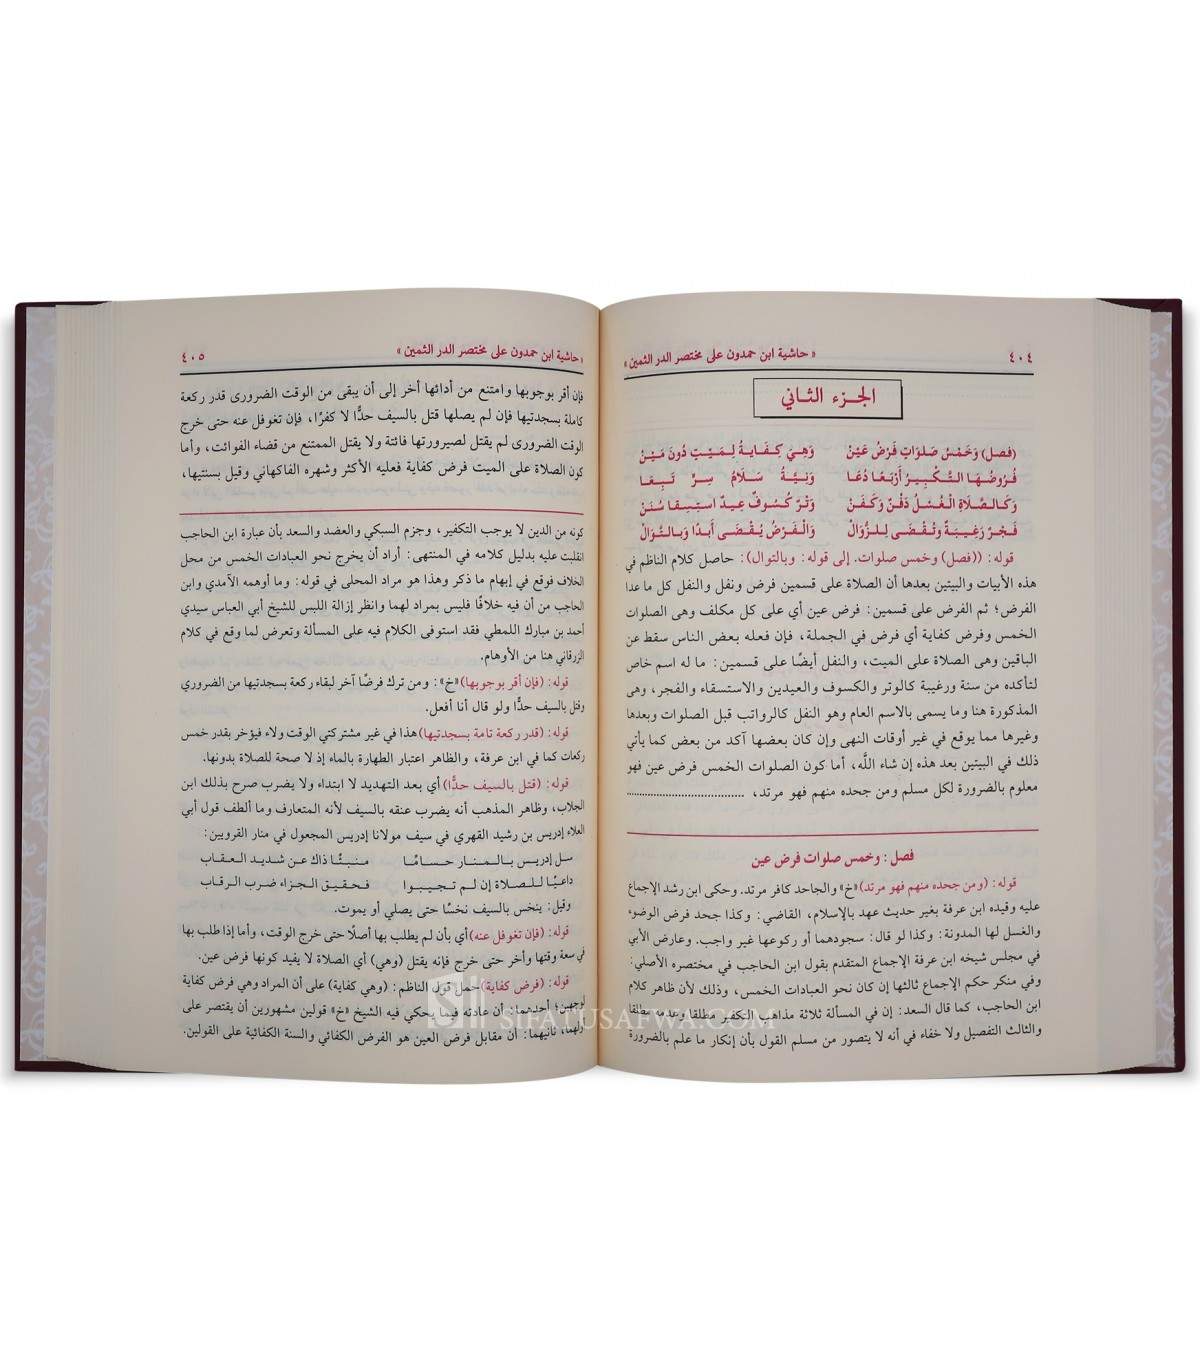 ٤٠٤
« حاشية ابن حمدون على مختصر الدر الثمين »
الجزء الثاني
(فصل) وَخَمْسُ صَلَوَاتٍ فَرْضُ عَيْنْ وَهِيَ كِفَايَةٌ لِمَيِّتٍ دُونَ مَيْنْ
فُرُوضُهَا التَّكْبِيرُ أَرْبَعًا دُعَا وَنِيَّةٌ سَلَامُ سِرٍّ تَبِعَا
وَكَالصَّلَاةِ الْغُسْلُ دَفْنٌ وَكَفَنْ وَتْرٌ كُسُوفٌ عِيدٌ اسْتِسْقَا سُنَنْ
فَجْرٌ رَغِيبَةٌ وَتُقْضَى لِلزَّوَالْ وَالْفَرْضُ يُقْضَى أَبَدًا وَبِالتَّوَالْ
قوله: ((فصل) وخمس صلوات. إلى قوله: وبالتوال): حاصل كلام الناظم في
هذه الأبيات والبيتين بعدها أن الصلاة على قسمين فرض ونفل والنفل كل ما عدا
الفرض؛ ثم الفرض على قسمين: فرض عين أي على كل مكلف وهى الصلوات
الخمس وفرض كفاية أي فرض في الجملة، فإن فعله بعض الناس سقط عن
الباقين وهى الصلاة على الميت، والنفل أيضًا على قسمين: ما له اسم خاص
لتأكده من سنة ورغيبة كالوتر والكسوف والعيدين والاستسقاء والفجر، وهى
المذكورة هنا وما يسمى بالاسم العام وهو النفل كالرواتب قبل الصلوات وبعدها
وغيرها مما يوقع في غير أوقات النهى وإن كان بعضها آكد من بعض كما يأتي
ذلك في البيتين بعد هذه إن شاء الله، أما كون الصلوات الخمس فرض عين فهو
معلوم بالضرورة لكل مسلم ومن جحده منهم فهو مرتد، ...............................
فصل: وخمس صلوات فرض عين
قوله: (ومن جحده منهم فهو مرتد) «خ» والجاحد كافر مرتد. وحكى ابن رشد الإجماع
عليه وقيده ابن عرفة بغير حديث عهد بالإسلام، القاضي: وكذا جحد فرض الوضوء
والغسل لها المدونة: وكذا لو قال: سجودهما أو ركوعها غير واجب. وعارض الأبي
في مجلس شيخه ابن عرفة الإجماع المتقدم بقول ابن الحاجب في مختصره الأصلي:
وفي منكر حكم الإجماع ثالثها إن كان نحو العبادات الخمس، وذلك لأن ظاهر كلام
ابن الحاجب، كما قال السعد: إن في المسألة ثلاثة مذاهب الكفير مطلقا وعدمه مطلقا
والثالث التفصيل ولا خفاء في أنه لا يتصور من مسلم القول بأن إنكار ما علم بالضرورة
« حاشية ابن حمدون على مختصر الدر الثمين »
٤٠٥
فإن أقر بوجوبها وامتنع من أدائها أخر إلى أن يبقى من الوقت الضرورى قدر ركعة
كاملة بسجدتيها فإن لم يصلها قتل بالسيف حدًّا لا كفرًا، فإن تغوفل عنه حتى خرج
الوقت الضرورى لم يقتل لصيرورتها فائتة ولا يقتل الممتنع من قضاء الفوائت، وأما
كون الصلاة على الميت فرض كفاية فعليه الأكثر وشهره الفاكهاني وقيل بسنتيها،
كونه من الدين لا يوجب التكفير، وجزم السبكي والعضد والسعد بأن عبارة ابن الحاجب
انقلبت عليه بدليل كلامه في المنتهى: أراد أن يخرج نحو العبادات الخمس من محل
الخلاف فوقع في إبهام ما ذكر وهذا هو مراد المحلى في قوله: وما أوهمه الآمدي وابن
الحاجب من أن فيه خلافًا فليس بمراد لهما وانظر إزالة اللبس للشيخ أبي العباس سيدي
أحمد بن مبارك اللمطي فقد استوفى الكلام فيه على المسألة وتعرض لما وقع في كلام
الزرقاني هنا من الأوهام.
قوله: (فإن أقر بوجوبها) «خ»: ومن ترك فرضًا آخر لبقاء ركعة بسجدتيها من الضروري
وقتل بالسيف حدًّا ولو قال أنا أفعل.
قوله: (قدر ركعة تامة بسجدتيها) هذا في غير مشتركتي الوقت ولاء فيؤخر بقدر خمس
ركعات كما في ابن عرفة، والظاهر اعتبار الطهارة بالماء إذ لا صحة للصلاة بدونها.
قوله: (قتل بالسيف حدًّا) أي بعد التهديد لا ابتداء ولا يضرب صرح بذلك ابن
الجلاب، وظاهر المذهب أنه يضرب عنقه بالسيف لأنه المتعارف وما ألطف قول أبي
العلاء إدريس بن رشيد القهري في سيف مولانا إدريس المجعول في منار القرويين:
سل إدريس بالمنار حسامًا منبئًا ذاك عن شديد العقاب
داعيًا للصلاة إن لم تجيبوا فحقيق الجزاء ضرب الرقاب
وقيل: ينخس بالسيف نخسًا حتى يصلي أو يموت.
قوله: (فإن تغوفل عنه) أي بأن لم يطلب بها أصلًا حتى خرج الوقت، وأما إذا طلب بها
في سعة وقتها وأخر حتى خرج فإنه يقتل (وهي) أي الصلاة لا يفيد كونها فرض عين.
قوله: (فرض كفاية) حمل قول الناظم: (وهي كفاية) على أن المراد وهي فرض كفاية
لوجهين؛ أحدهما: أن عادته فيما يحكي فيه الشيخ «خ» قولين مشهورين أن يقتصر على
أولهما، ثانيهما: أن مقابل فرض العين هو الفرض الكفائي والسنة الكفائية على القولين.
SIFATUSAFWA.COM